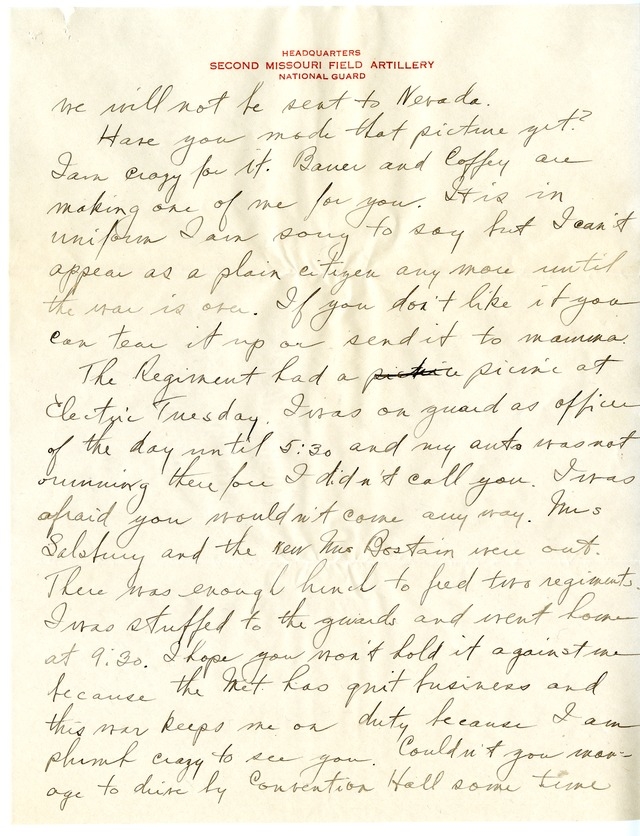 HEADQUARTERS
SECOND MISSOURI FIELD ARTILLERY
NATIONAL GUARD
we will not be sent to Nevada.
Have you made that picture yet?
I am crazy for it. Bauer and Coffey are
making one of me for you. It is in
uniform I am sorry to say but I can't
appear as a plain citizen any more until
the war is over. If you don't like it you
can tear it up or send it to mamma.
The Regiment had a picnic at
Electric Tuesday. I was on guard as officer
of the day until 5:30 and my auto was not
running therefore I didn't call you. I was
afraid you wouldn't come any way. Mrs
Salsbury and the new Mrs Bostain were out.
There was enough lunch to feed two regiments.
I was stuffed to the guards and went home
at 9:30. I hope you won't hold it against me
because the Met. has quit business and
this war keeps me on duty because I am
plumb crazy to see you. Couldn't you man-
age to drive by Convention Hall some time